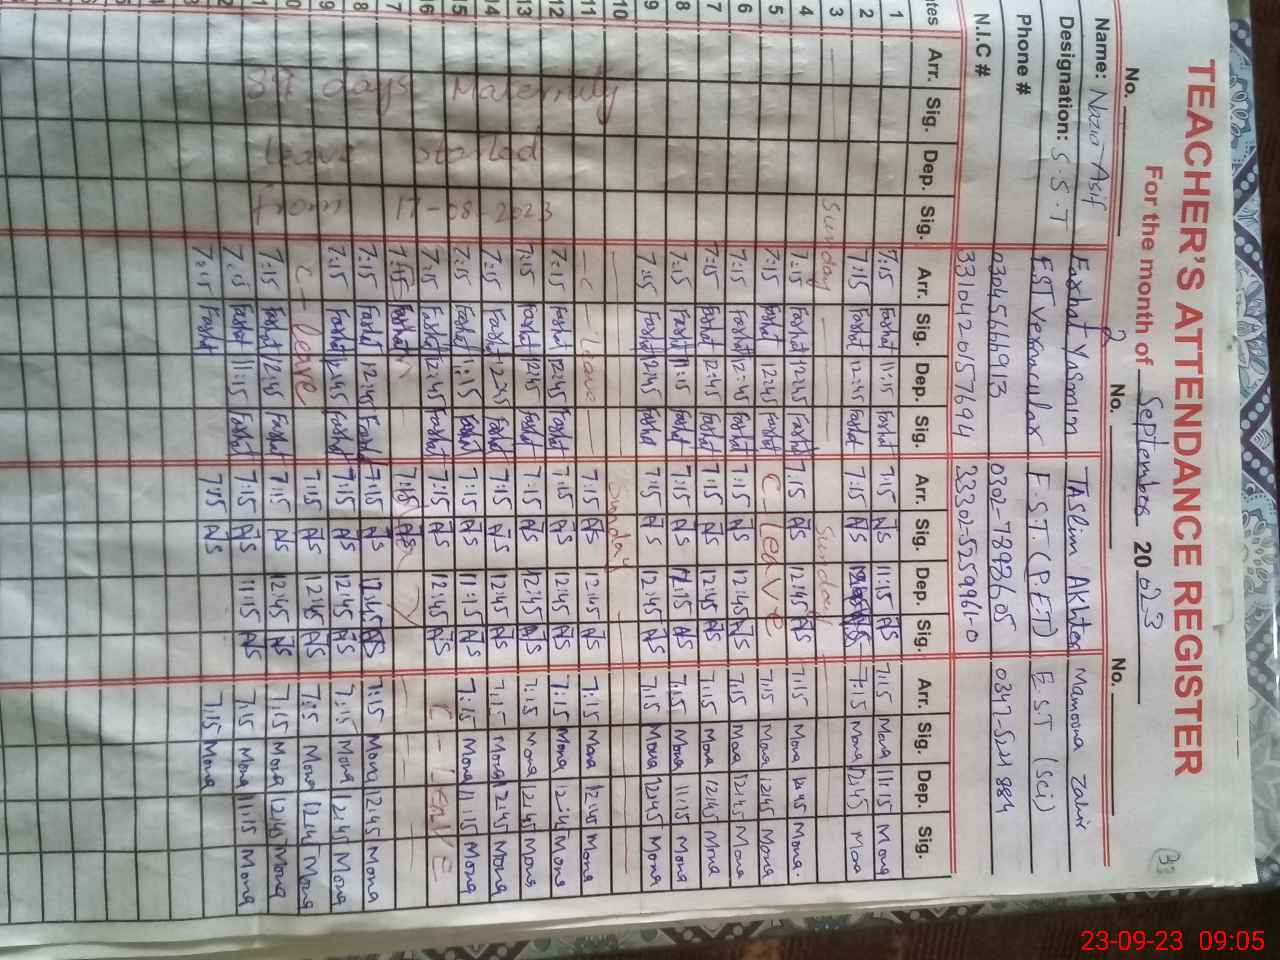 TEACHER'S ATTENDANCE REGISTER
For the month of September 2023
No. No. No.
Name: Nazia Asif Farhat Yasmin TASlim Akhter Mamoona Zahir
Designation: S.S.T EST Vernacular E.S.T. (P.ET) EST (Sci)
Phone # 03045666913 0302-7898605
N.I.C # 3310420157694
Arr. Sig. Dep. Sig. Arr. Sig. Dep. Sig. Arr. Sig. Dep. Sig. Arr. Sig. Dep. Sig.
1 7:15 Farhat 11:15 Farhat 7:15 11:15 7:15 Mona 11:15 Mona
2 7:15 Farhat 12:45 Farhat 7:15 7:15 Mona 12:45 Mona
3 Sunday Sunday
4 7:15 Farhat 12:45 Farhat 7:15 12:45 7:15 Mona 12:45 Mona
5 7:15 Farhat 12:45 Farhat C-Leave 7:15 Mona 12:45 Mona
6 7:15 Farhat 12:45 Farhat 7:15 12:45 7:15 Mona 12:45 Mona
7 7:15 Farhat 12:45 Farhat 7:15 12:45 7:15 Mona 12:45 Mona
8 7:15 Farhat 11:15 Farhat 7:15 7:15 Mona 11:15 Mona
9 7:15 Farhat 12:45 Farhat 7:15 12:45 7:15 Mona 12:45 Mona
10 Sunday
11 C-leave 7:15 12:45 7:15 Mona 12:45 Mona
12 7:15 Farhat 12:45 Farhat 7:15 12:45 7:15 Mona 12:45 Mona
13 7:15 Farhat 12:45 Farhat 7:15 12:45 7:15 Mona 12:45 Mona
14 7:15 Farhat 12:45 Farhat 7:15 12:45 7:15 Mona 12:45 Mona
15 7:15 Farhat 11:15 Farhat 7:15 11:15 7:15 Mona 11:15 Mona
16 7:15 Farhat 12:45 Farhat 7:15 12:45 C-LEAVE
17 7:15 Farhat 7:15
18 7:15 Farhat 12:45 Farhat 7:15 12:45 7:15 Mona 12:45 Mona
19 7:15 Farhat 12:45 Farhat 7:15 12:45 7:15 Mona 12:45 Mona
C-leave 7:15 12:45 7:15 Mona 12:45 Mona
7:15 Farhat 12:45 Farhat 7:15 12:45 7:15 Mona 12:45 Mona
7:15 Farhat 11:15 Farhat 7:15 11:15 7:15 Mona 11:15 Mona
7:15 Farhat 7:15 7:15 Mona
days Maternity
leave started
from 17-08-2023
23-09-23 09:05